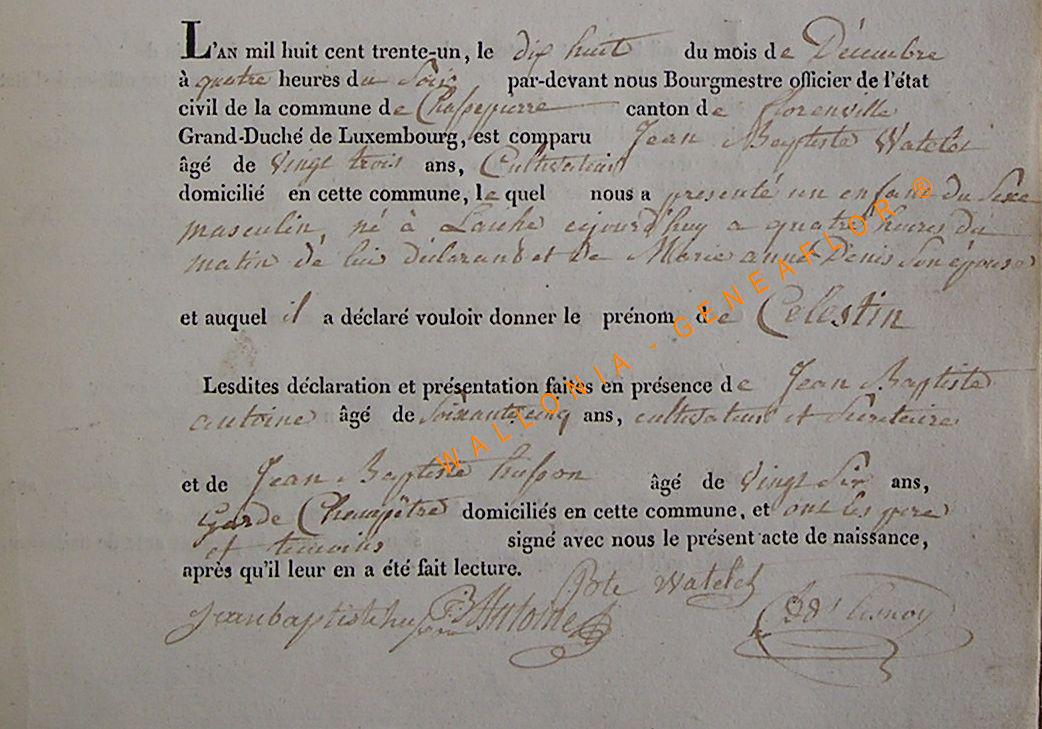 L'AN mil huit cent trente-un, le dix huit du mois de Décembre
à quatre heures du Soir par-devant nous Bourgmestre officier de l'état
civil de la commune de Chassepierre canton de florenville
Grand-Duché de Luxembourg, est comparu Jean Baptiste Watelet
âgé de vingt trois ans, Cultivateur
domicilié en cette commune, le quel nous a presenté un enfant du Sexe
masculin, né à Laiche cejourd'huy a quatre heures du
matin de lui déclarant et de Marie anne Denis Son épouse
et auquel il a déclaré vouloir donner le prénom de Celestin
Lesdites déclaration et présentation faites en présence de Jean Baptiste
antoine âgé de Soixante cinq ans, cultivateur et Secretaire
et de Jean Baptiste husson âgé de vingt Six ans,
Garde Champêtre domiciliés en cette commune, et ont les pere
et temoins signé avec nous le présent acte de naissance,
après qu'il leur en a été fait lecture.
Bte Watelet
Jeanbaptistehusson JB Antoine
WALLONIA - GENEAFLOR ®